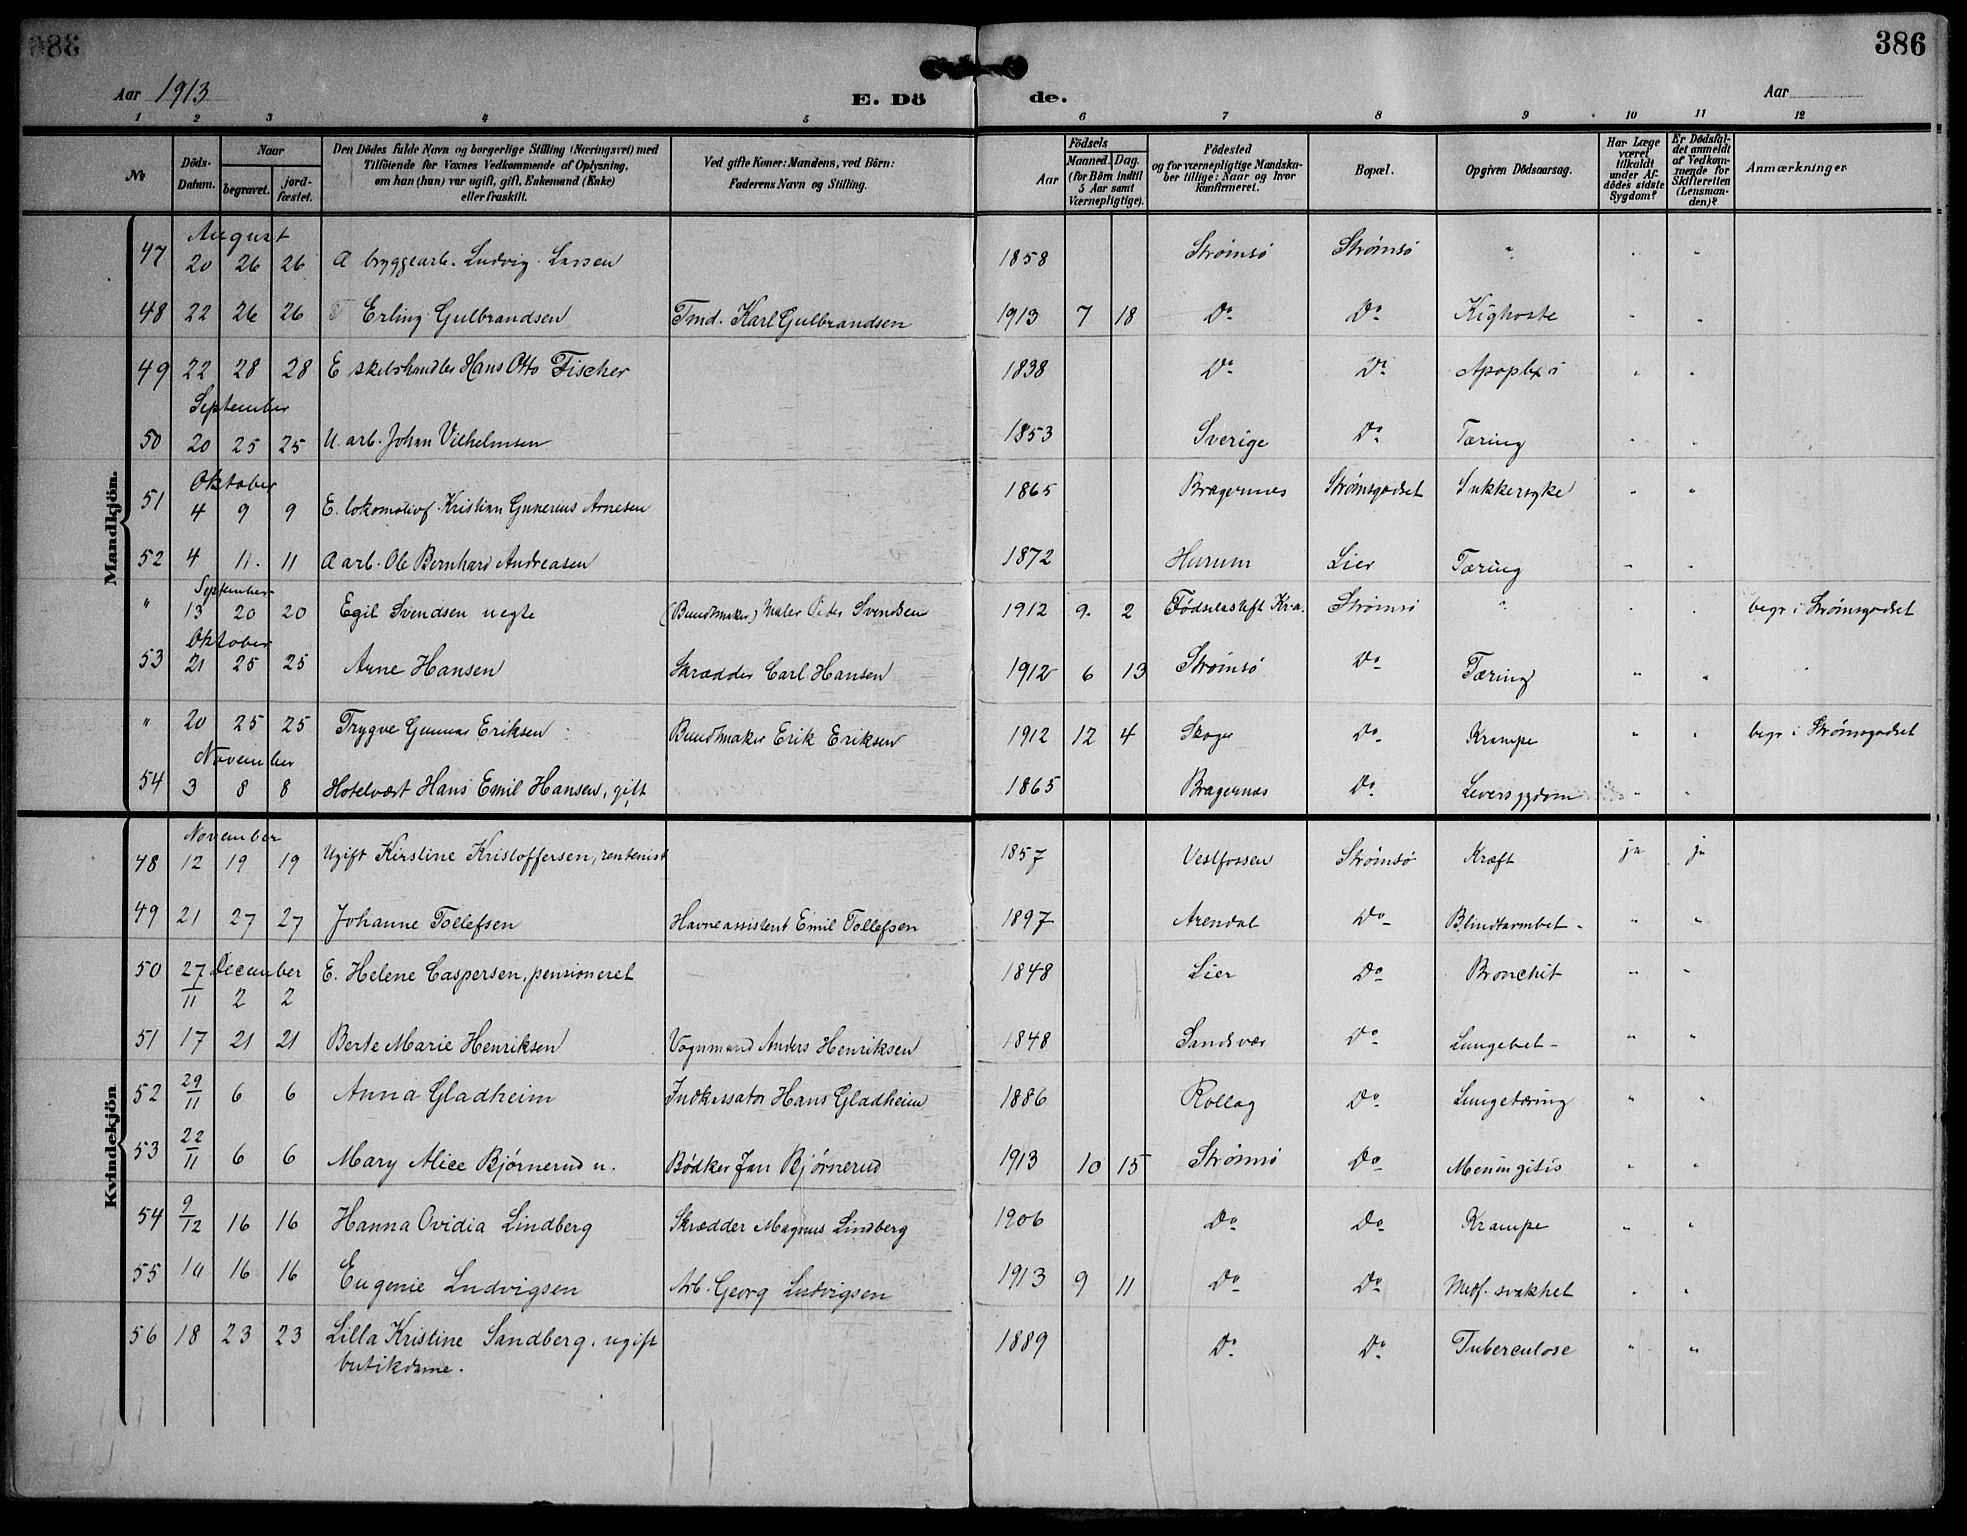 386
Aar 1913 E. Dö de. Aar
1 2 3 4 5 6 7 8 9 10 11 12
No
Döds-Datum.
Naar
begravet. jord-fæstet.
Den Dödes fulde Navn og borgerlige Stilling (Næringsvei) med
Tilföiende for Voxnes Vedkommende af Oplysning,
om han (hun) var ugift, gift, Enkemand (Enke)
eller fraskilt.
Ved gifte Koner: Mandens, ved Börn:
Faderens Navn og Stilling.
Födsels
Aar Maaned. Dag.
(for Börn indtil
5 Aar samt
Værnepligtige).
Födested
og for værnepligtige Mandska-
ber tillige: Naar og hvor
konfirmeret.
Bopæl.
Opgiven Dödsaarsag.
Har Læge
været
tilkaldt
under Af-
dödes sidste
Sygdom?
Er Dödsfal-
det anmeldt
af Vedkom-
mende for
Skifteretten
(Lensman-
den)?
Anmærkninger
Mandkjön.
August
47 20 26 26 bryggearb. Ludvig Larsen 1858 Strømsö Strømsö " " "
48 22 26 26 Erling Gulbrandsen Tmd. Karl Gulbrandsen 1913 7 18 Do Do Kighoste " "
49 22 28 28 E Hans Otto Fischer 1838 Do Do Apoplexi " "
September
50 20 25 25 U. arb. Johan Vilhelmsen 1853 Sverige Do Tæring " "
Oktober
51 4 9 9 E. lokomotivf. Kristian Gunerius Arnesen 1865 Bragernes Strømsgodset Sukkersyke " "
52 4 11 11 arb. Ole Bernhard Andreasen 1872 Hurum Lier Tæring " "
September
" 13 20 20 Egil Svendsen uegte (Bundtmaker) Maler Peder Svendsen 1912 9 2 Fødselsstift Kr.a. Strømsö " " " begr i Strømsgodset
Oktober
53 21 25 25 Arne Hansen Skrædder Carl Hansen 1912 6 13 Strømsö Do Tæring " "
" 20 25 25 Trygve Gunnar Eriksen Bundtmaker Erik Eriksen 1912 12 4 Skoger Do Krampe " " begr i Strømsgodset
November
54 3 8 8 Hotelvært Hans Emil Hansen, gift 1865 Bragernes Do Leversygdom " "
Kvindekjön
November
48 12 19 19 Ugift Kirstine Kristoffersen, rentenist 1857 Vestfossen Strømsö Kræft ja ja
49 21 27 27 Johanne Tollefsen Havneassistent Emil Tollefsen 1897 Arendal Do Blindtarmbet. " "
December
50 27/11 2 2 E. Helene Caspersen, pensioneret 1848 Lier Do Bronchit " "
51 17 21 21 Berte Marie Henriksen Vognmand Anders Henriksen 1848 Sandsvær Do Lungebet. " "
52 29/11 6 6 Anna Gladheim Indkassator Hans Gladheim 1886 Rollag Do Lungetæring " "
53 22/11 6 6 Mary Alice Bjørnerud u. Bødker Jan Bjørnerud 1913 10 15 Strømsö Do Meningitis " "
54 9/12 16 16 Hanna Ovidia Lindberg Skrædder Magnus Lindberg 1906 Do Do Krampe " "
55 10 16 16 Eugenie Ludvigsen Arb. Georg Ludvigsen 1913 9 11 Do Do Medf. svakhet " "
56 18 23 23 Lilla Kristine Sandberg, ugift 1889 Do Do Tuberculose " "
butikdame.